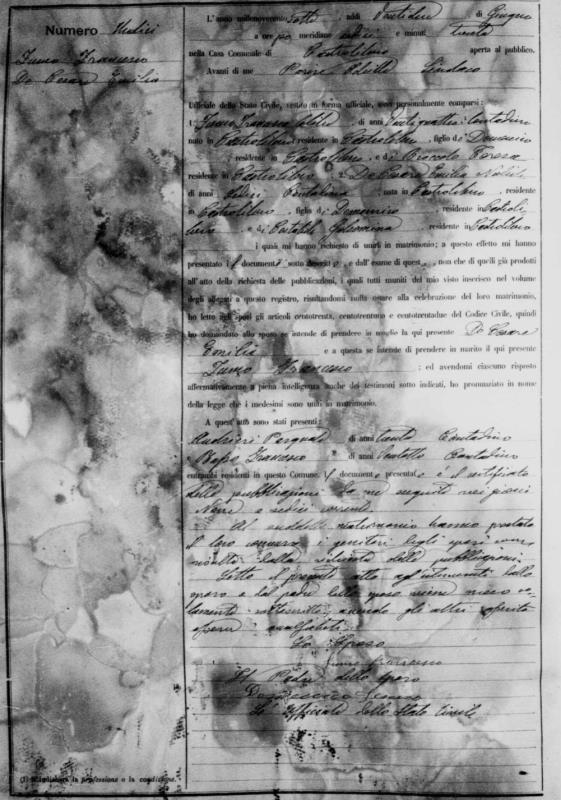 Numero Undici
Francesco
De Cesare Emilia
L'anno millenovecento sette, addì Ventidue di Giugno
a ore po meridiane sedici e minuti trenta
nella Casa Comunale di Castrolibero aperta al pubblico.
Avanti di me Sindaco
Ufficiale dello Stato Civile, vestito in forma ufficiale, sono personalmente comparsi:
1. Francesco celibe, di anni ventiquattro, Contadino
nato in Castrolibero, residente in Castrolibero, figlio di Domenico
, residente in Castrolibero, e di Teresa
residente in Castrolibero 2. De Cesare Emilia Nubile
di anni sedici Contadina, nata in Castrolibero, residente
in Castrolibero, figlia di Domenico, residente in Castroli
bero, e di, residente in Castrolibero
i quali mi hanno richiesto di unirli in matrimonio; a questo effetto mi hanno
presentato il documento sotto descritto e dall'esame di questo, non che di quelli già prodotti
all'atto della richiesta delle pubblicazioni, i quali tutti muniti del mio visto inserisco nel volume
degli allegati a questo registro, risultandomi nulla ostare alla celebrazione del loro matrimonio,
ho letto agli sposi gli articoli centotrenta, centotrentuno e centotrentadue del Codice Civile, quindi
ho domandato allo sposo se intende di prendere in moglie la qui presente De Cesare
Emilia e a questa se intende di prendere in marito il qui presente
Francesco; ed avendomi ciascuno risposto
affermativamente a piena intelligenza anche dei testimoni sotto indicati, ho pronunziato in nome
della legge che i medesimi sono uniti in matrimonio.
A quest'atto sono stati presenti:
Pasquale di anni trenta Contadino
Francesco di anni ventotto Contadino
entrambi residenti in questo Comune. il documento presentato è il certificato
delle pubblicazioni da me eseguite nei giorni
nove e sedici corrente.
Al suddetto matrimonio hanno prestato
il loro consenso i genitori degli sposi come
risulta dalla richiesta delle pubblicazioni.
Letto il presente atto agl'intervenuti dallo
sposo e dal padre dello sposo viene meco so-
lamente sottoscritto, avendo gli altri asserito
essere analfabeti.
Lo Sposo
Francesco
Il Padre dello sposo
Domenico
Lo Ufficiale dello Stato Civile
(1) Si aggiunga la professione o la condizione.